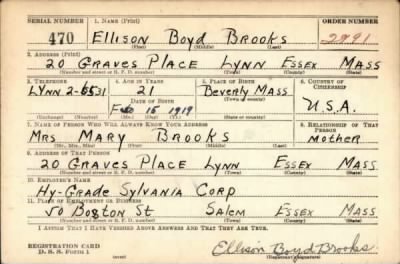 SERIAL NUMBER 1. NAME (Print) ORDER NUMBER
470 Ellison Boyd Brooks 2891
(First) (Middle) (Last)
2. ADDRESS (Print)
20 GRAVES PLACE LYNN ESSEX MASS
(Number and street or R. F. D. number) (Town) (County) (State)
3. TELEPHONE 4. AGE IN YEARS 5. PLACE OF BIRTH 6. COUNTRY OF CITIZENSHIP
LYNN 2-6531 21 Beverly MASS U.S.A.
DATE OF BIRTH (Town or county)
Feb 15 1919
(Mo.) (Day) (Yr.) (State or country)
7. NAME OF PERSON WHO WILL ALWAYS KNOW YOUR ADDRESS 8. RELATIONSHIP OF THAT PERSON
MRS MARY BROOKS Mother
(Mr., Mrs., Miss) (First) (Middle) (Last)
9. ADDRESS OF THAT PERSON
20 GRAVES PLACE LYNN ESSEX MASS
(Number and street or R. F. D. number) (Town) (County) (State)
10. EMPLOYER'S NAME
Hy-GRADE SYLVANIA CORP
11. PLACE OF EMPLOYMENT OR BUSINESS
50 Boston St. Salem Essex MASS
(Number and street or R. F. D. number) (Town) (County) (State)
I AFFIRM THAT I HAVE VERIFIED ABOVE ANSWERS AND THAT THEY ARE TRUE.
REGISTRATION CARD
D. S. S. Form 1 Ellison Boyd Brooks
(Registrant's signature)